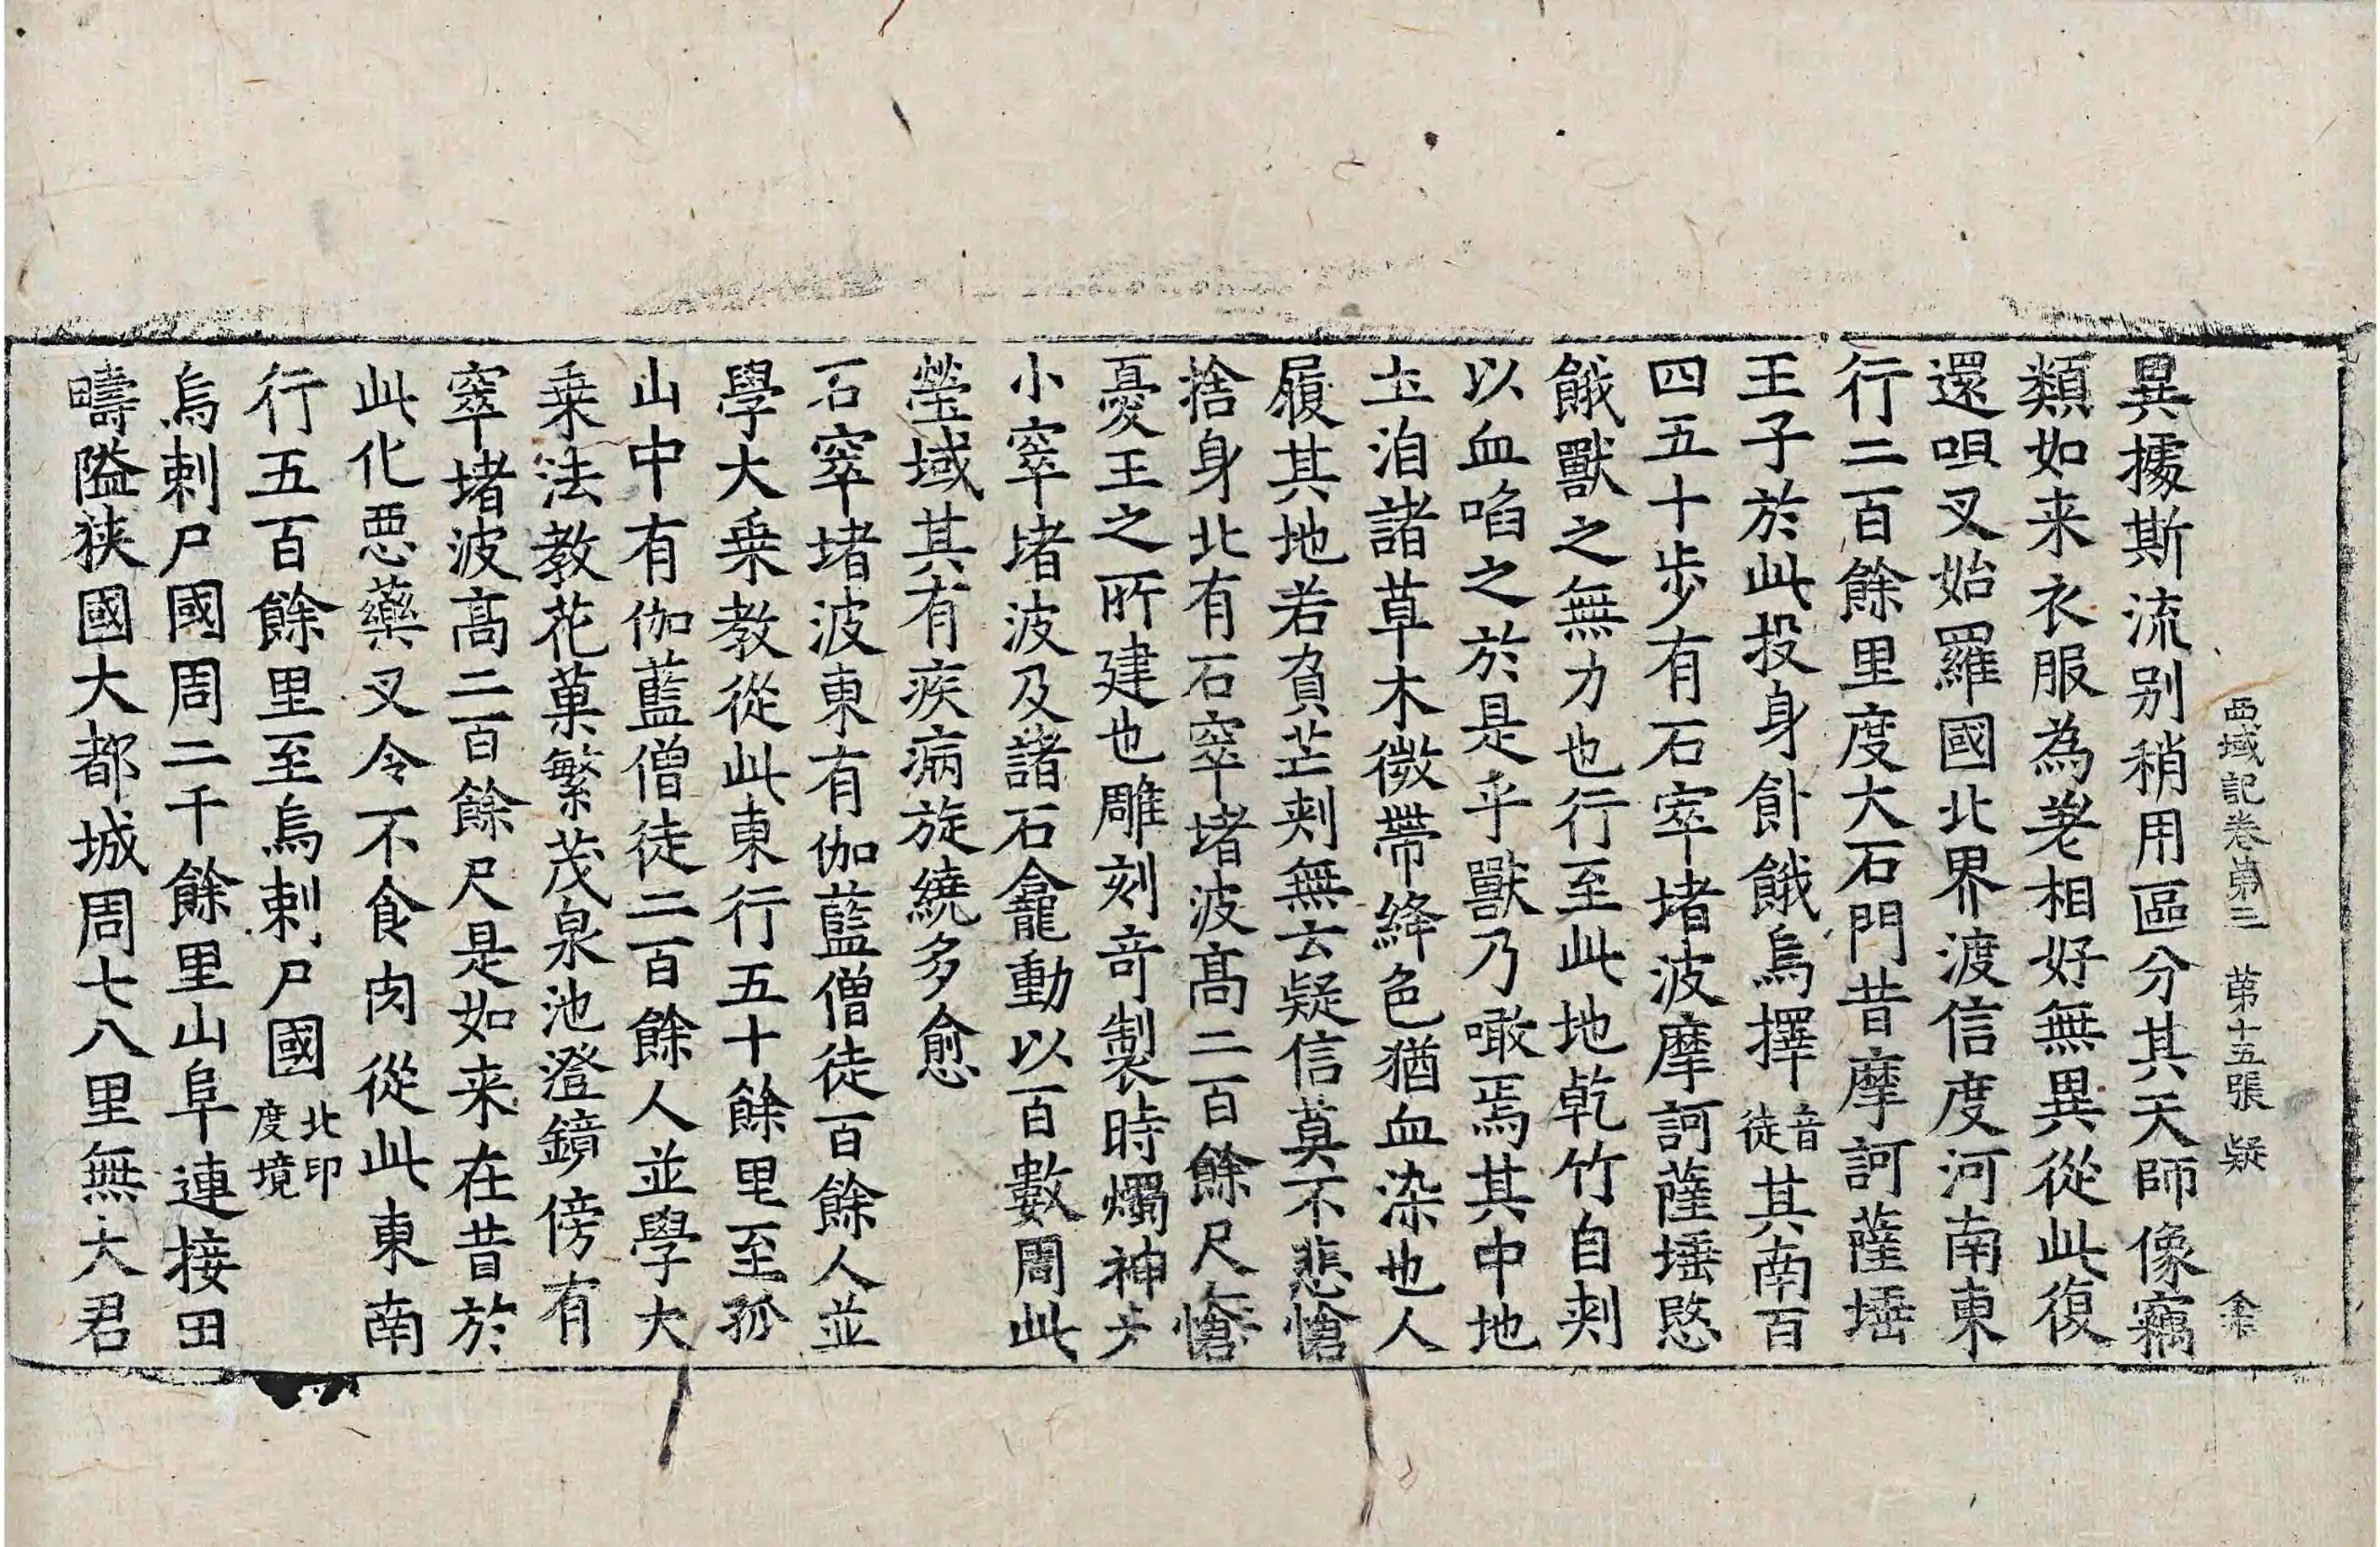 西域記卷第三 第十五張 疑
異據斯流別稍用區分其天師像竊
類如来衣服為差相好無異從此復
還呾叉始羅國北界渡信度河南東
行二百餘里度大石門昔摩訶薩埵
王子於此投身飤餓烏擇音徒其南百
四五十步有石窣堵波摩訶薩埵愍
餓獸之無力也行至此地乾竹自刾
以血啗之於是乎獸乃噉焉其中地
土洎諸草木微帶絳色猶血染也人
履其地若負芒刾無云疑信莫不悲愴
捨身北有石窣堵波高二百餘尺無愴
憂王之所建也雕刻竒製時燭神光
小窣堵波及諸石龕動以百數周此
塋域其有疾病旋繞多愈
石窣堵波東有伽藍僧徒百餘人並
學大乗教從此東行五十餘里至孤
山中有伽藍僧徒二百餘人並學大
乗法教花菓繁茂泉池澄鏡傍有
窣堵波高二百餘尺是如来在昔於
此化惡藥叉令不食肉從此東南
行五百餘里至烏剌尸國北印度境
烏剌尸國周二千餘里山阜連接田
疇隘狹國大都城周七八里無大君